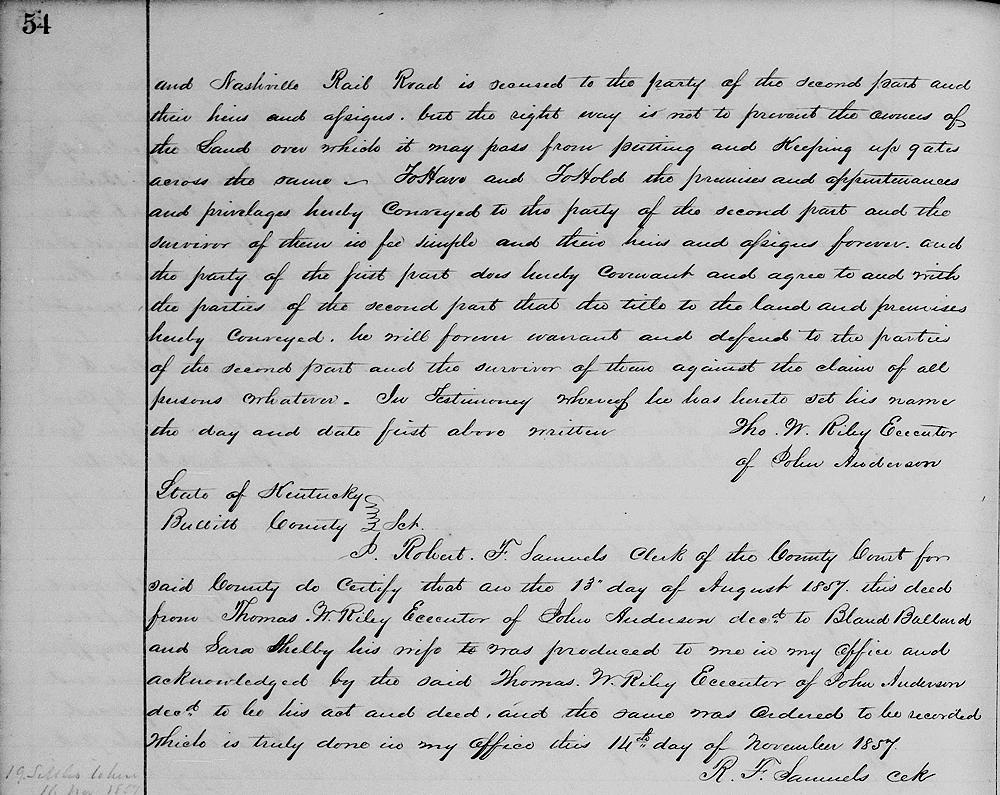 54
and Nashville Rail Road is secused to the party of the second part and
their heirs and assigns. but the right way is not to prevent the owners of
the Land over which it may pass from putting and Keeping up gates
across the same ~ To Have and To Hold the premises and appurtenances
and privelages hereby Conveyed to the party of the second part and the
survivor of them in fee simple and their heirs and assigns forever. and
the party of the first part does hereby Covenant and agree to and with
the parties of the second part that the title to the land and premises
hereby Conveyed. he will forever warrant and defend to the parties
of the second part and the survivor of them against the claim of all
persons whatever. In Testimoney whereof he has hereto set his name
the day and date first above written Tho. W. Riley Executor
of John Anderson
State of Kentucky
Bullitt County Sct.
I. Robert. F. Samuels Clerk of the County Court for
said County do Certify that on the 13" day of August 1857. this deed
from Thomas. W. Riley Executor of John Anderson decd to Bland Ballard
and Sara Shelby his wife was produced to me in my office and
acknowledged by the said Thomas. W. Riley Executor of John Anderson
decd to be his act and deed, and the same was Ordered to be recorded
Which is truly done in my office this 14th day of November 1857.
R. F. Samuels cck
16 Nov 1857